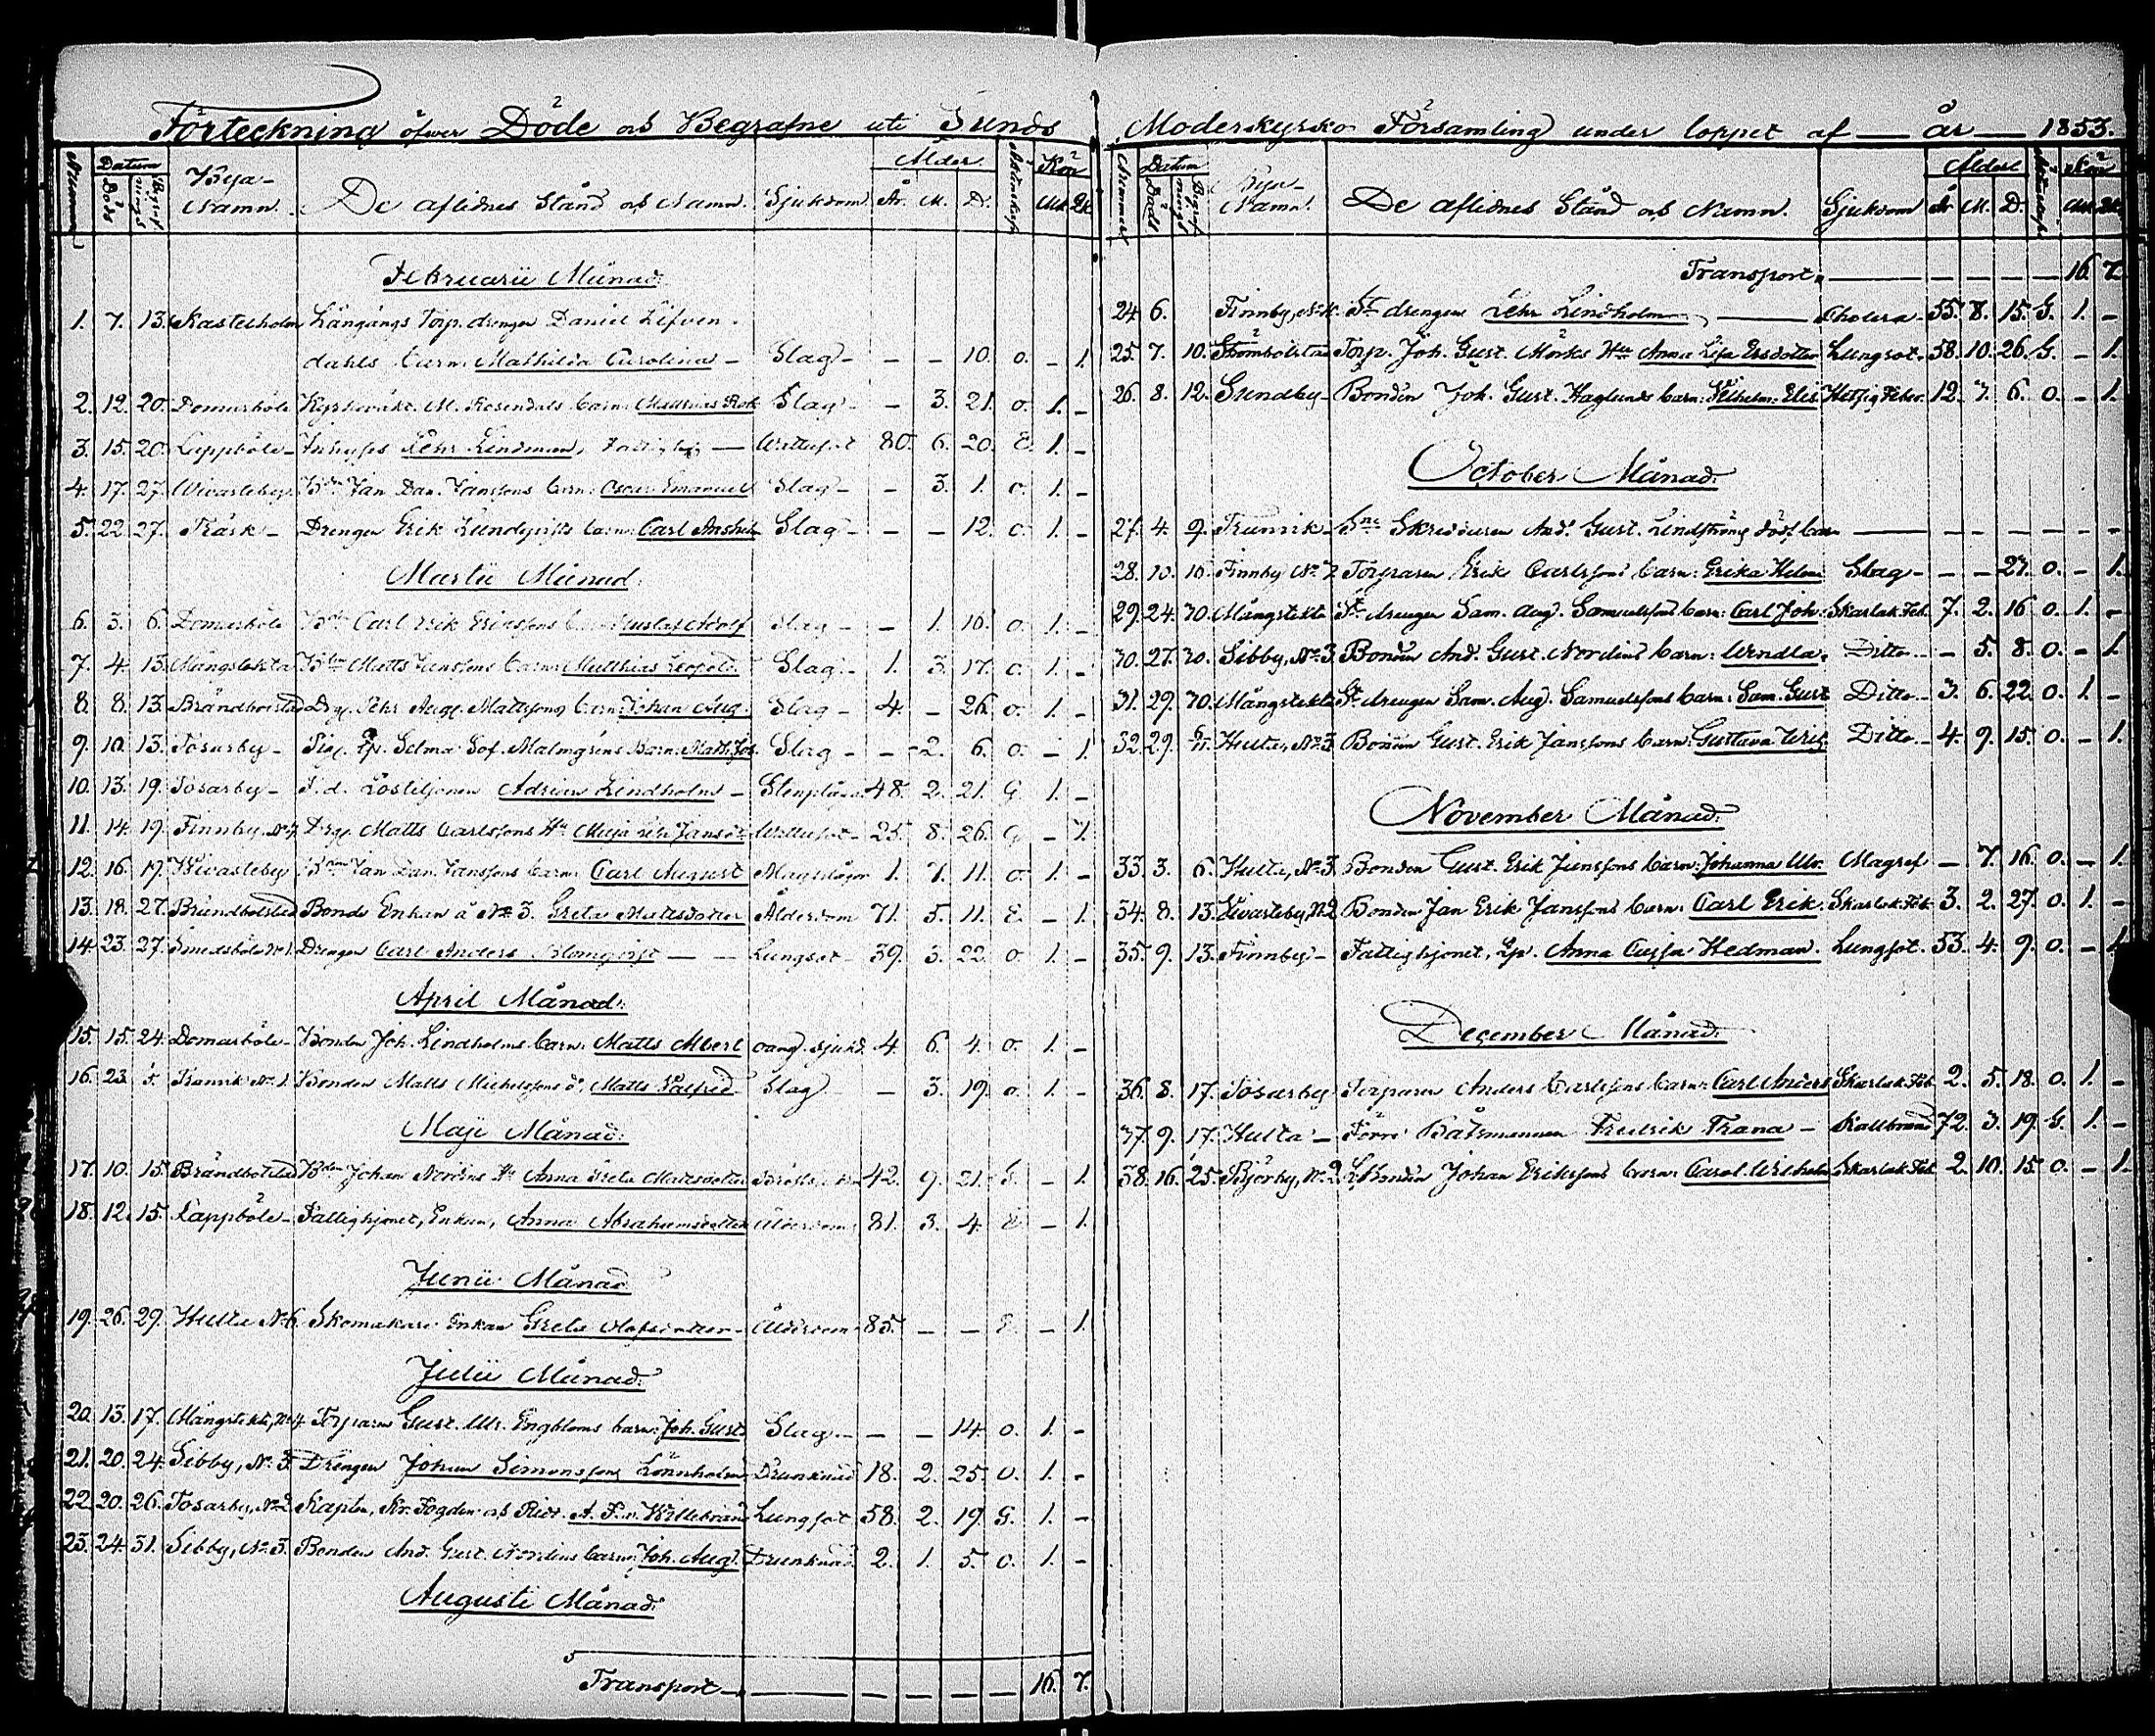 Förteckning öfwer Döde och Begrafne uti Sunds
Nummer Datum Bya- De aflidnes Stånd och Namn. Sjukdom Ålder Kön
Död Namn. År. M. D. Mk. Qk.
Februarii Månad.
1. 7. 13. Kastelholm Långängs Torp. drengen Daniel Lifven-
dahls barn: Mathilda Carolina - Slag - - - 10. o. - 1.
2. 12. 20. Domarböle Kyrkovakt. M. Rosendals barn: Slag - - 3. 21. o. 1. -
3. 15. 20. Lappböle - Inhyses Pehr Lindman, Fattighj. - Wattusot 80. 6. 20. E. 1. -
4. 17. 27. Wivasteby. Bdn Jan Dan. Jansons barn: Oscar Emanuel Slag - - 3. 1. o. 1. -
5. 22. 27. Träsk - Drengen Erik Lundqvists barn: Carl Anshelm Slag - - - 12. o. 1. -
Martii Månad.
6. 3. 6. Domarböle Bdn Carl Erik Ericssons barn Gustaf Adolf Slag - - 1. 16. o. 1. -
7. 4. 13. Mångstekta Bdn Matts Janssons barn: Matthias Leopold. Slag - 1. 3. 17. o. 1. -
8. 8. 13. Brändbolstad Drg. Pehr Aug. Mattssons barn Johan Aug. Slag - 4. - 26. o. 1. -
9. 10. 13. Tosarby - Pig. Selma Sof. Malmgréns Barn: Slag - - 2. 6. o. - 1.
10. 13. 19. Tosarby - F.d. Postiljonen Adrian Lindholm - Stenplåga 48. 2. 21. G. 1. -
11. 14. 19. Finnby, Nº 4 Drg. Matts Carlssons Hu Maja Lisa Jansdr Wattusot - 25. 8. 26. G. - 1.
12. 16. 17. Wivasteby Bdn Jan Dan. Janssons barn: Carl August Magplågor 1. 7. 11. o. 1. -
13. 18. 27. Brändbolstad Bonde Enkan å Nº 3. Greta Mattsdotter Ålderdom 71. 5. 11. E. - 1.
14. 23. 27. Smedsböle Nº 1. Drengen Carl Anders Blomqvist - - Lungsot - 39. 3. 22. o. 1. -
April Månad.
15. 15. 24. Domarböle - Bonden Joh. Lindholms barn: Matts Albert oang. sjukd. 4. 6. 4. o. 1. -
16. 23. 5. Tranvik Nº 1. Bonden Matts Michelssons dº. Matts Walfrid Slag - - 3. 19. o. 1. -
Maji Månad.
17. 10. 15. Brändbolstad Bdn Johan Nordéns Hu Anna Greta Mattsdotter 42. 9. 21. G. - 1.
18. 12. 15. Lappböle - Fattighjonet, Enkan, Anna Abrahamsdotter Ålderdom 81. 3. 4. E. - 1.
Junii Månad.
19. 26. 29. Hulta Nº 6. Skomakare Enkan Greta Olofsdotter - Ålderdom - 85. - - E. - 1.
Julii Månad.
20. 13. 17. Mångstekta, Nº 4 Torparen Gust. Ulr. Engbloms barn: Joh. Gust. Slag. - - - 14. o. 1. -
21. 20. 24. Sibby, Nº 3. Drengen Johan Simonsson Lönnholm Drunknad 18. 2. 25. o. 1. -
22. 20. 26. Tosarby, Nº 2. Kapten, Kr. Fogden och Ridd. A. F. v. Willebrand Lungsot 58. 2. 19. G. 1. -
23. 24. 31. Sibby, Nº 3. Bonden And. Gust. Nordéns barn: Joh. Aug. Drunknad. 2. 1. 5. o. 1. -
Augusti Månad.
Transport - - - - - - 16. 7.
Moderkyrko Församling under loppet af - år - 1853.
Nummer Datum Bya- De aflidnes Stånd och Namn. Sjukdom Ålder Kön
Död Namn. År M. D. Mk. Qk.
Transport. - - - - - 16. 7.
24. 6. Finnby, Nº 4. St. drengen Pehr Lindholm - Cholera - 55. 8. 15. G. 1. -
25. 7. 10. Strömbolstad Torp. Joh. Gust. Mörks Hu Anna Lisa Ersdotter Lungsot. 58. 10. 26. G. - 1.
26. 8. 12. Sundby - Bonden Joh. Gust. Haglunds barn: Vilhelm. Elis. Hetsig Feber. 12. 7. 6. o. - 1.
October Månad.
27. 4. 9. Tranvik - Skreddaren And. Gust. Lindströms dödf. barn - - - - - - -
28. 10. 16. Finnby Nº 2 Torparen Erik Carlssons barn: Erika Helena Slag - - - 27. o. - 1.
29. 24. 30. Mångstekta St. drengen Sam. Aug. Samuelssons barn: Carl Joh. Skarlak. Feb. 7. 2. 16. o. 1. -
30. 27. 30. Sibby, Nº 3. Bonden And. Gust. Nordéns barn: Wendla. Ditto - - 5. 8. o. - 1.
31. 29. 30. Mångstekta St. drengen Sam. Aug. Samuelssons barn: Sam. Gust. Ditto - 3. 6. 22. o. 1. -
32. 29. Hulta, Nº 3. Bonden Gust. Erik Janssons barn: Gustava Ditto - 4. 9. 15. o. - 1.
November Månad.
33. 3. 6. Hulta, Nº 3. Bonden Gust. Erik Janssons barn: Johanna Ulr. Magref - 7. 16. o. - 1.
34. 8. 13. Wivasteby, Nº 2 Bonden Jan Erik Janssons barn: Carl Erik. Skarlak. Feb. 3. 2. 27. o. 1. -
35. 9. 13. Finnby - Fattighjonet, Anna Cajsa Hedman. Lungsot. 53. 4. 9. o. - 1.
December Månad.
36. 8. 17. Tosarby Torparen Anders Carlssons barn: Carl Anders Skarlak. Feb. 2. 5. 18. o. 1. -
37. 9. 17. Hulta - Förre Båtsmannen Fredrik Trana - Kallbrand 72. 3. 19. G. 1. -
38. 16. 25. Björby, Nº 2. Bonden Johan Erikssons barn: Carol. Wilhelm. Skarlak. Feb. 2. 10. 15. o. - 1.